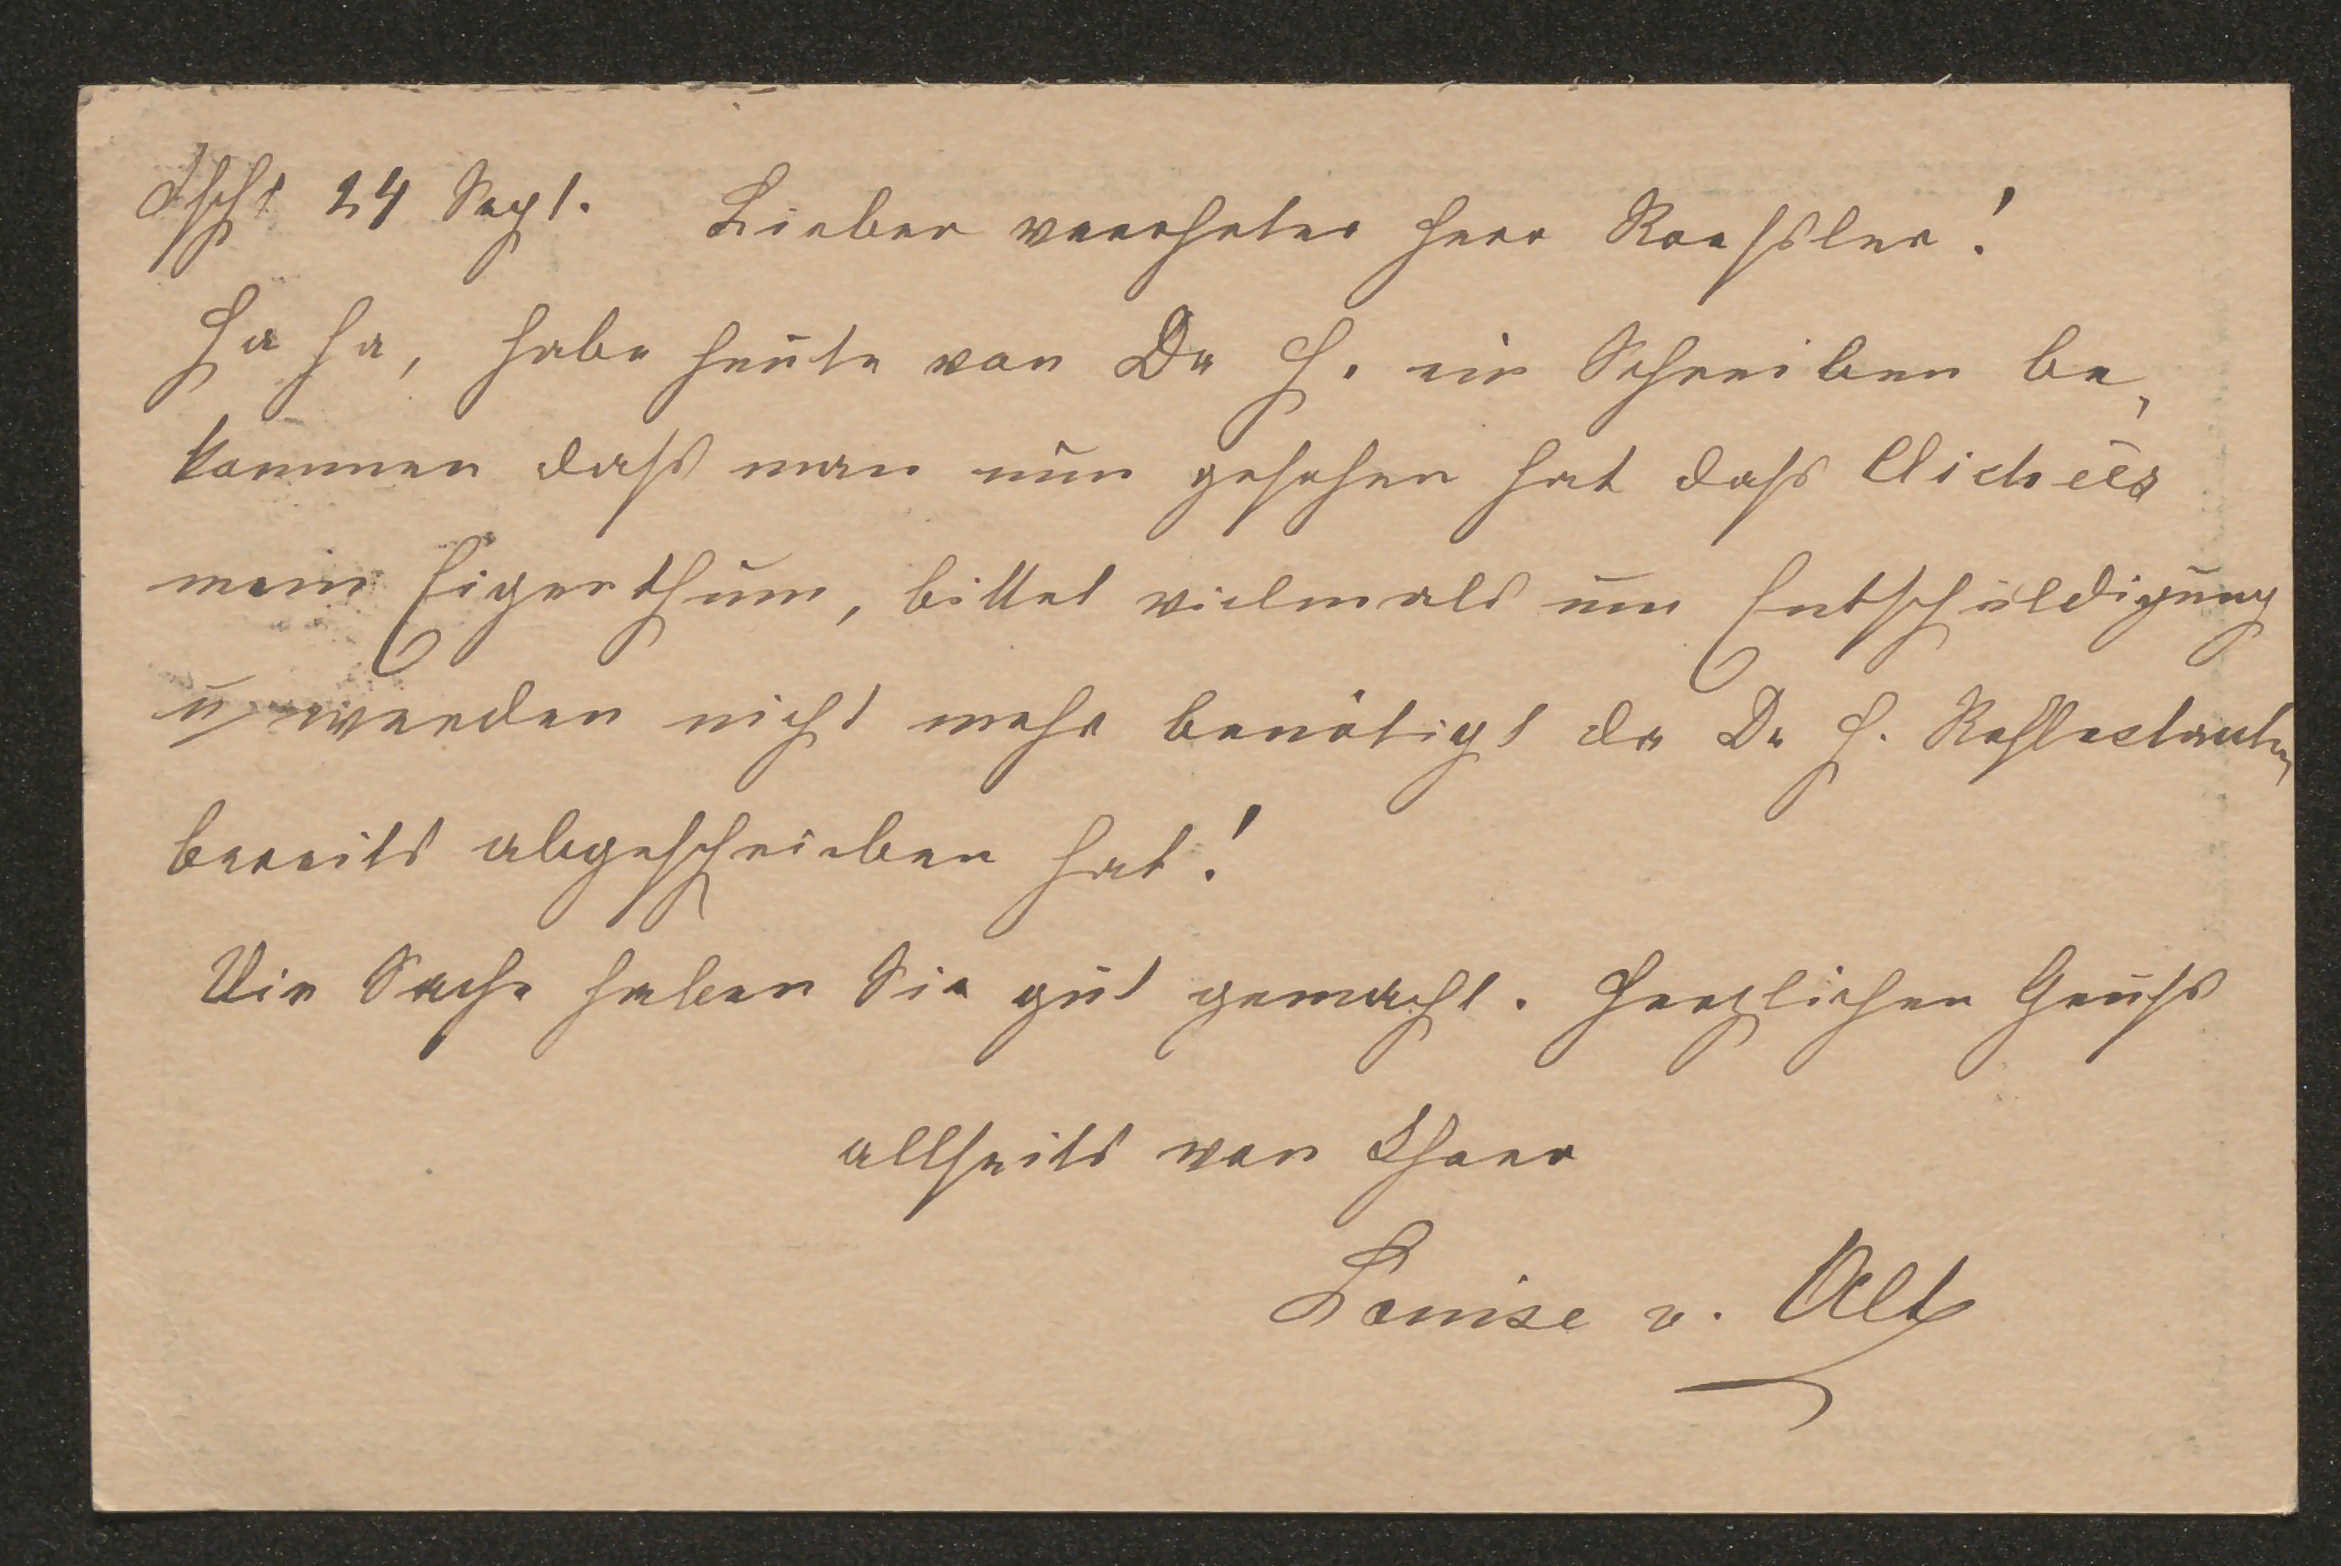 Ischl 24 Sept. Lieber veerhrter Herr Roessler!
Ha ha, habe heute von Dr H. ein Schreiben be„
kommen dass man nun gesehen hat dass Clichées
mein Eigenthum, bittet vielmals um Entschuldigung
u werden nicht mehr benötigt da Dr H. Reflectanten
bereits abgeschrieben hat!
Die Sache haben Sie gut gemacht. Herzlichen Gruss
allseits von Ihrer
Louise v. Alt